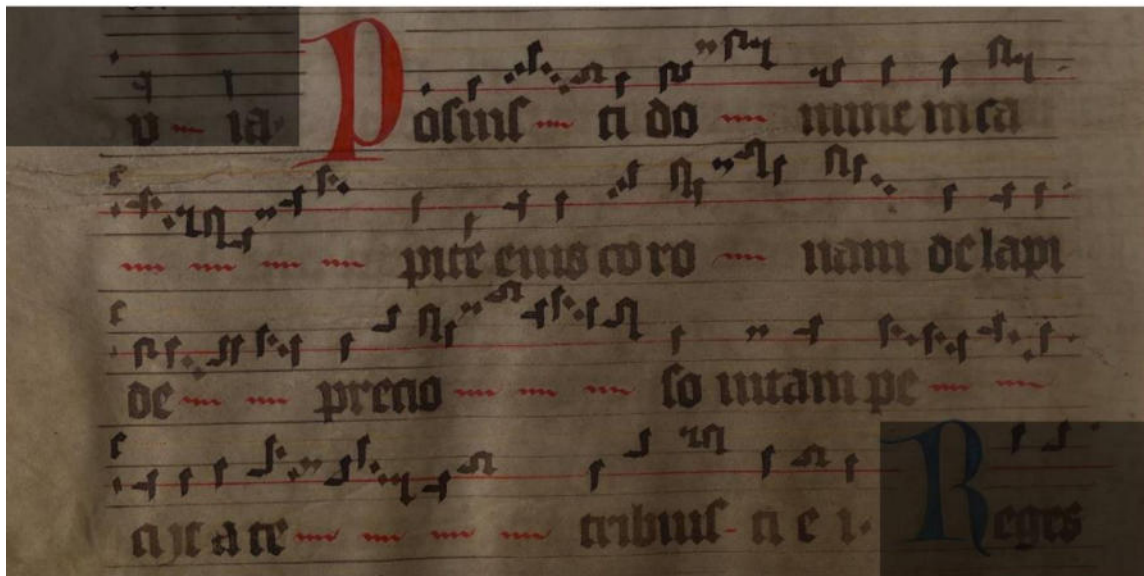 u ia Posuis ti do mine in ca
pite eius co ro nam de lapi
de precio so uitam pe
cijt a te tribuis ti e i. Reges